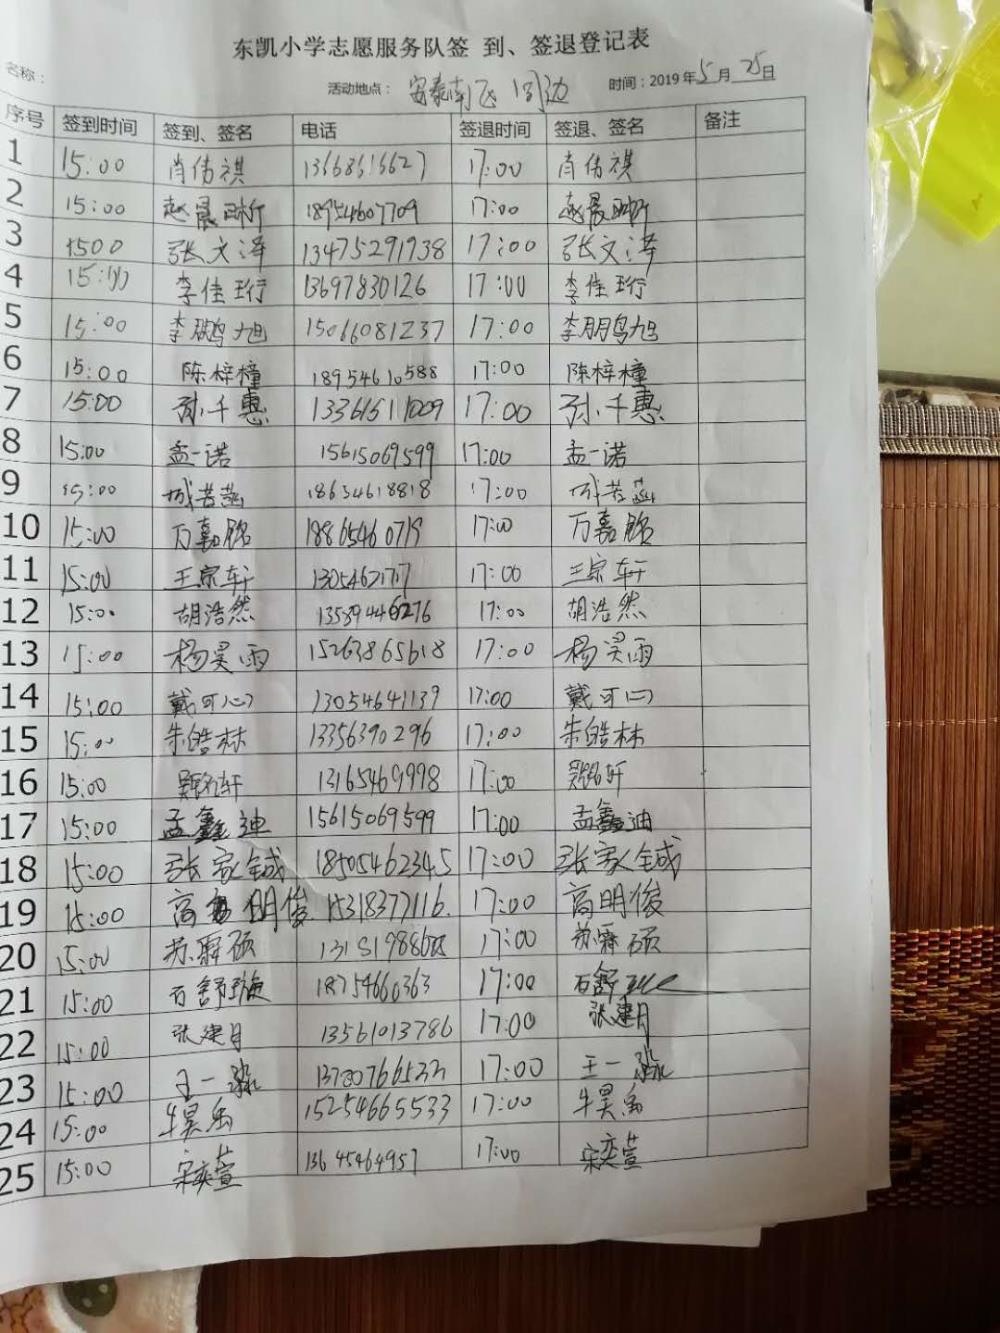 东凯小学志愿服务队签 到、签退登记表
名称： 活动地点： 安泰南区周边 时间：2019年5月25日
序号 签到时间 签到、签名 电话 签退时间 签退、签名 备注
1 15:00 肖伟祺 13668616627 17:00 肖伟祺
2 15:00 赵晨 18954607709 17:00 赵晨
3 1500 张文泽 13475291938 17:00 张文泽
4 15:00 李佳珩 13697830126 17:00 李佳珩
5 15:00 李鹏旭 15066081237 17:00 李鹏旭
6 15:00 陈梓橦 18954610588 17:00 陈梓橦
7 15:00 孙千惠 13361511009 17:00 孙千惠
8 15:00 孟一诺 15615069599 17:00 孟一诺
9 15:00 18654618818 17:00
10 15:00 万嘉铭 18865460719 17:00 万嘉铭
11 15:00 王宗轩 17:00 王宗轩
12 15:00 胡浩然 13589446276 17:00 胡浩然
13 15:00 杨昊雨 15263865618 17:00 杨昊雨
14 15:00 戴可心 13054641139 17:00 戴可心
15 15:00 朱皓林 13356390296 17:00 朱皓林
16 15:00 13165469998 17:00
17 15:00 孟鑫迪 15615069599 17:00 孟鑫迪
18 15:00 张家铖 18505462345 17:00 张家铖
19 15:00 高明俊 15318377116 17:00 高明俊
20 15:00 苏霖硕 17:00 苏霖硕
21 15:00 石舒 18754660363 17:00 石舒
22 15:00 张建月 13561013786 17:00 张建月
23 15:00 王一 17:00 王一
24 15:00 牛昊禹 15254665533 17:00 牛昊禹
25 15:00 宋奕萱 13645464957 17:00 宋奕萱